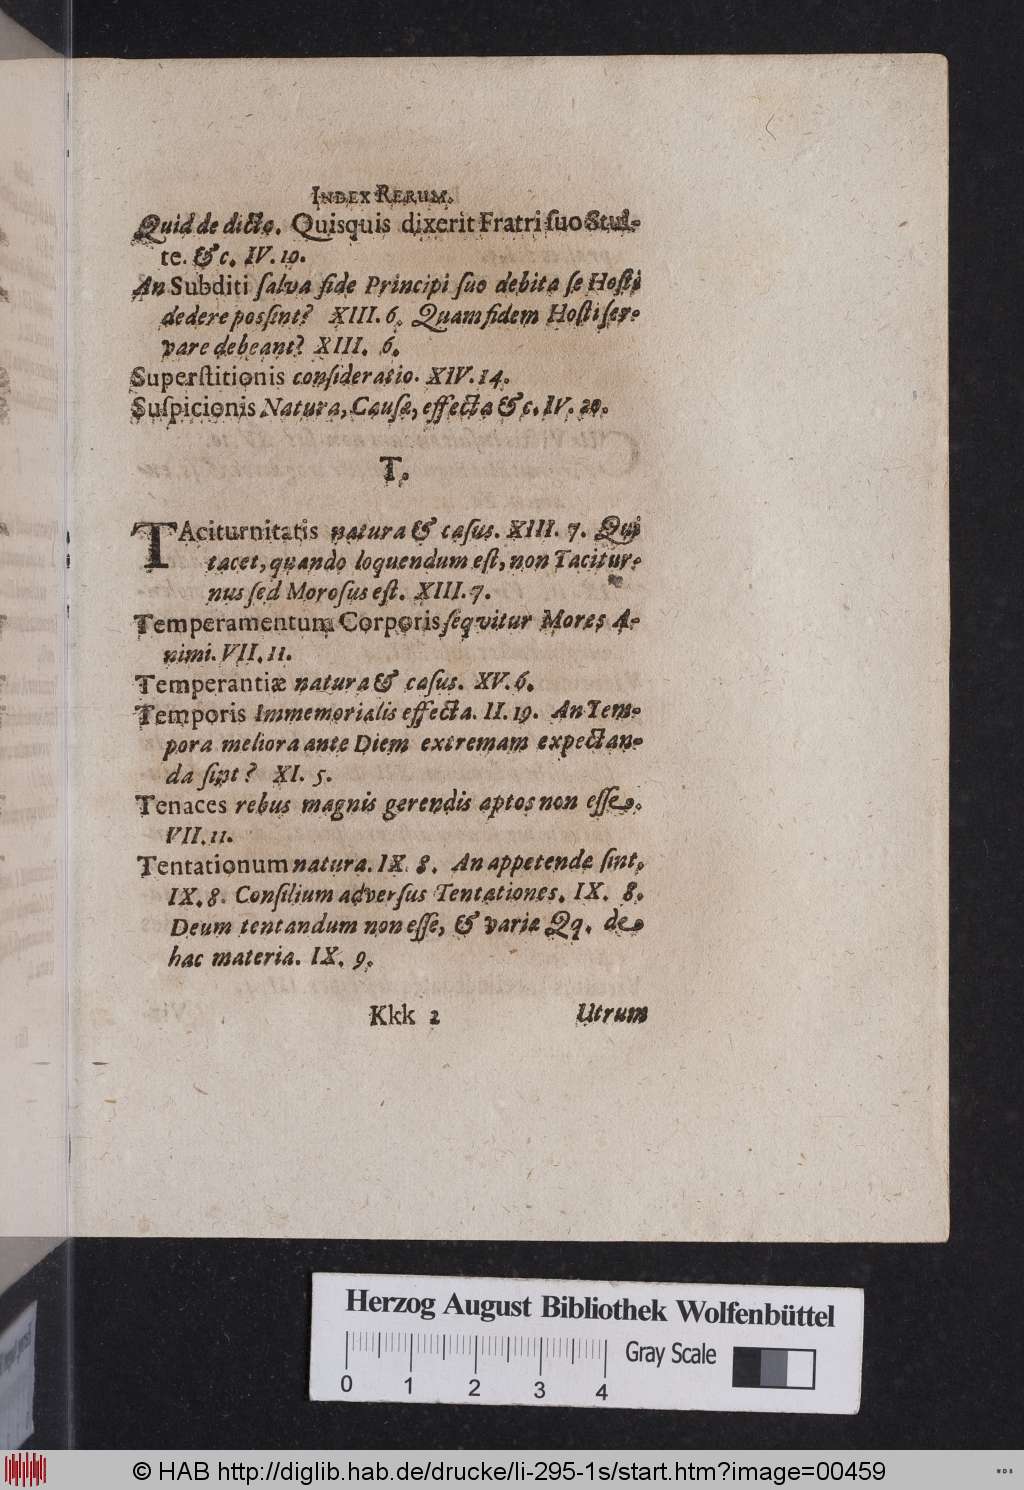 INDEX RERUM.
Quid de dicto. Quisquis dixerit Fratri ſuo Stul-
te. & c. IV. 19.
An Subditi ſalva fide Principi ſuo debita ſe Hoſti
dedere posſint? XIII. 6. Quam fidem Hoſti ſer-
vare debeant? XIII. 6.
Superſtitionis conſideratio. XIV. 14.
Suſpicionis Natura, Cauſæ, effecta & c. IV. 20.
T.
TAciturnitatis natura & caſus. XIII. 7. Qui
tacet, quando loquendum eſt, non Tacitur-
nus ſed Moroſus eſt. XIII. 7.
Temperamentum Corporis ſeqvitur Mores A-
nimi. VII. 11.
Temperantiæ natura & caſus. XV. 6.
Temporis Immemorialis effecta. II. 19. An Tem-
pora meliora ante Diem extremam expectan-
da ſint? XI. 5.
Tenaces rebus magnis gerendis aptos non eſſe.
VII. 11.
Tentationum natura. IX. 8. An appetendæ ſint,
IX. 8. Conſilium adverſus Tentationes. IX. 8.
Deum tentandum non eſſe, & variæ Qq. de
hac materia. IX. 9.
Kkk 2 Utrum
Herzog August Bibliothek Wolfenbüttel
0 1 2 3 4 Gray Scale
© HAB http://diglib.hab.de/drucke/li-295-1s/start.htm?image=00459
WDB